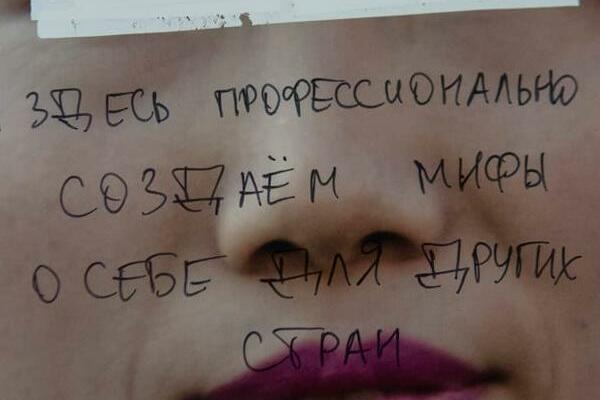 ЗДЕСЬ ПРОФЕССИОНАЛЬНО
СОЗДАЁМ МИФЫ
О СЕБЕ ДЛЯ ДРУГИХ
СТРАН